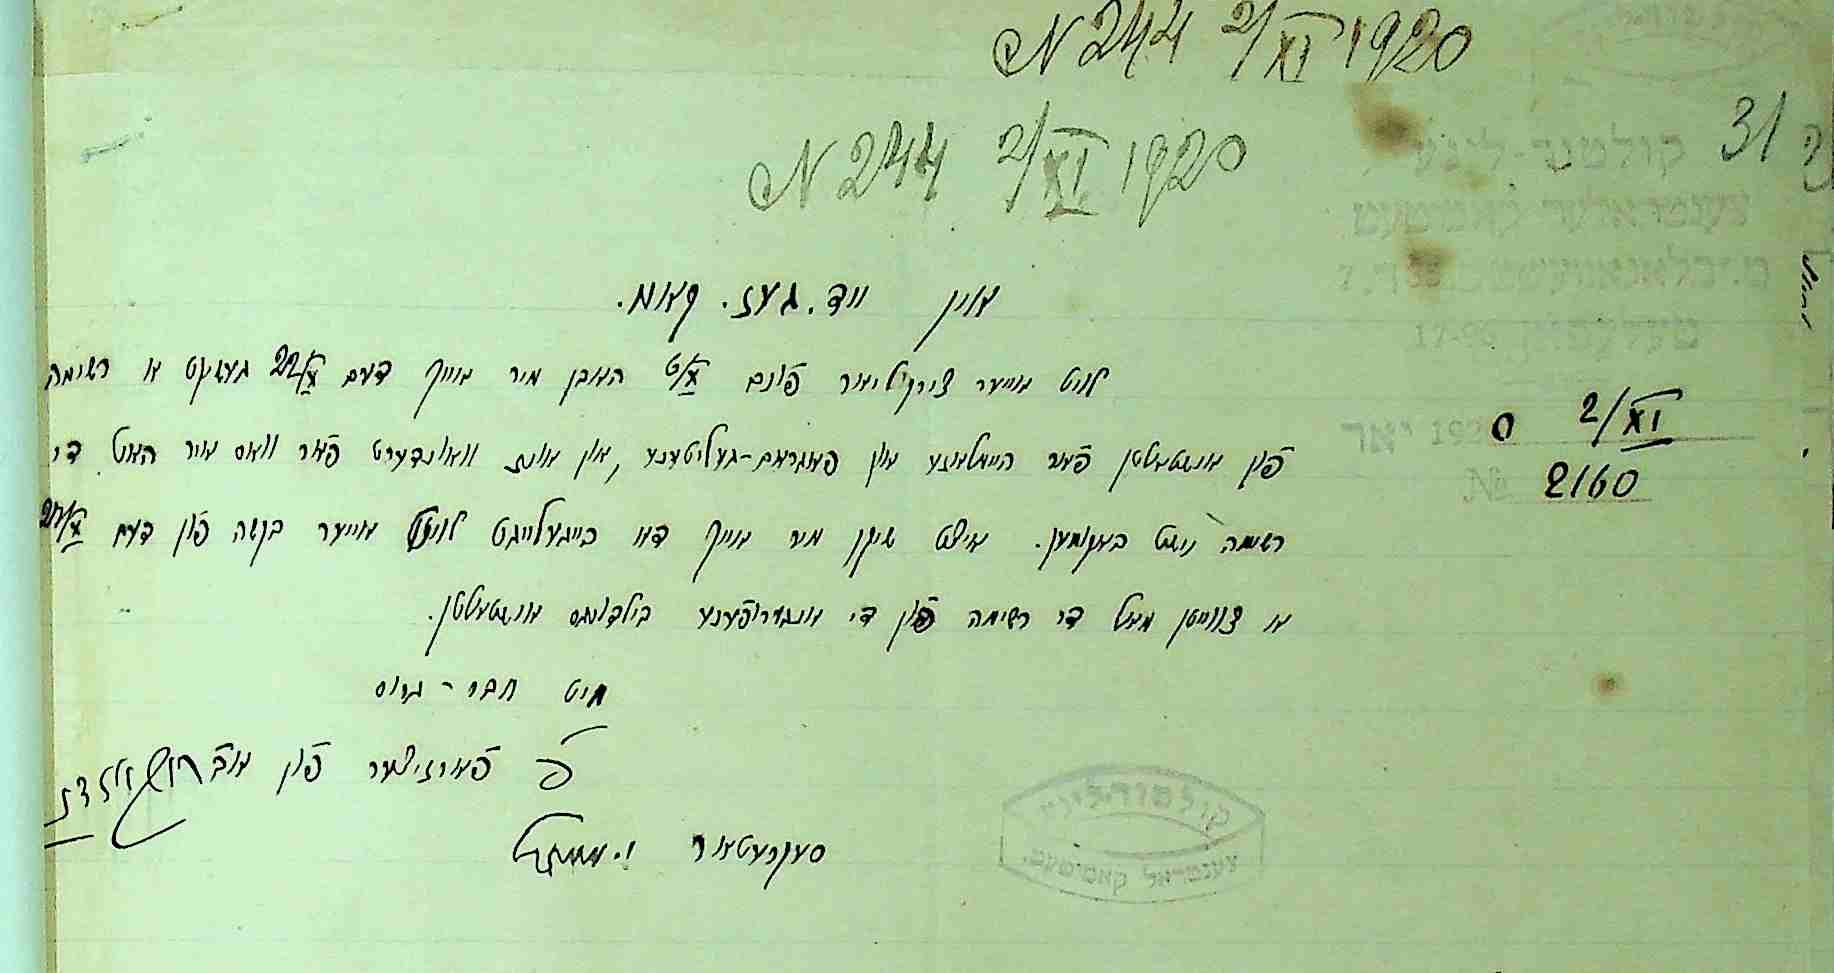 N 244 2/XI 1920
N 244 2/XI 1920
31
קולטור-ליגע
צענטראלער קאמיטעט
0 2/XI
יאר 192
№ 2160
אין ייד. געז. קאמ.
לויט אייער צירקוליאר פֿונם 9/X האבן מיר אויף דעם 22/X געשיקט א רשימה
פֿון אנשטאלטן פֿאר היימלאזע און פאגראם-געליטענע, און אונז וואונדערט פֿאר וואס איר האט די
רשימה נישט באקומען. איצט שיקן מיר אייך דא בייגעלייגט לויט אייער בקשה פֿון דעם 27/X
א צווייטן מאל די רשימה פֿון די אנגעטראפֿענע בילדונגס אנשטאלטן.
מיט חבר-גרוס
פֿארזיצער פֿון
סעקרעטאר
קולטור-ליגע
צענטראל קאמיטעט